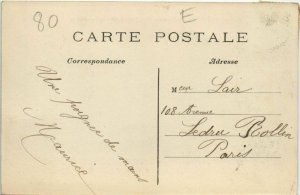 80
E
CARTE POSTALE
Correspondance
Adresse
Une poignée de mains
Maurice
Lair
108 Avenue
Ledru Rollin
Paris